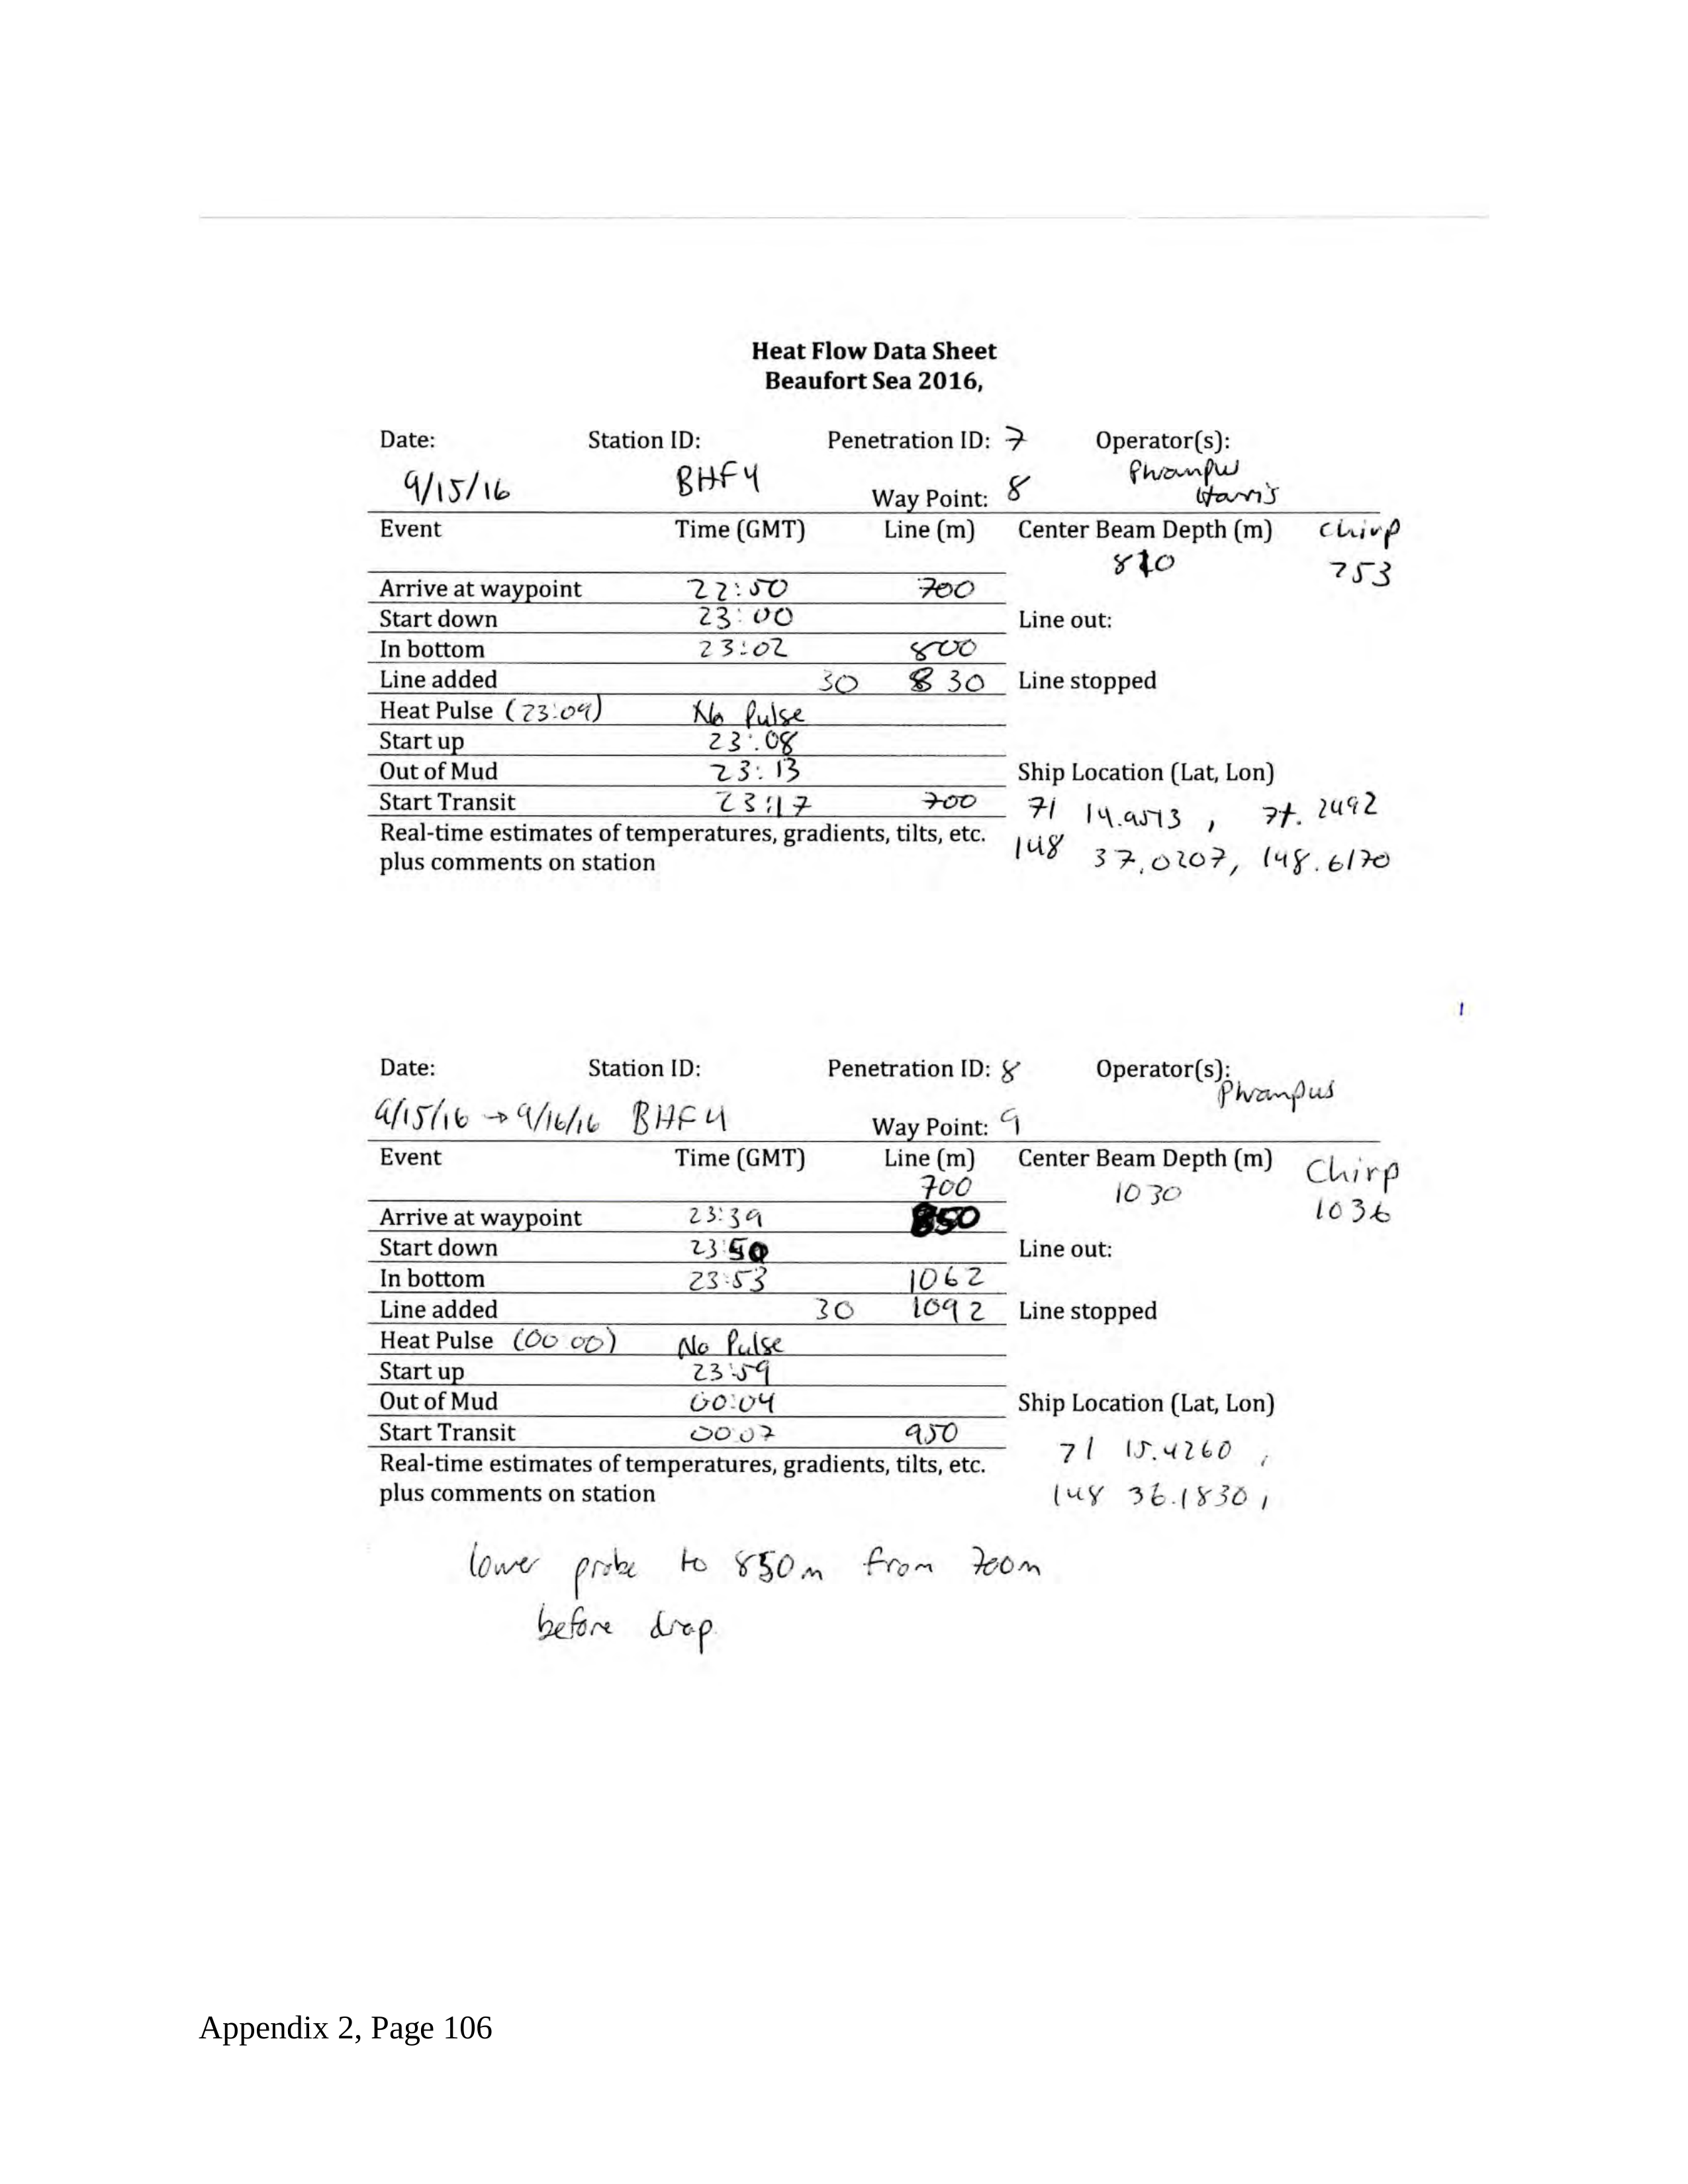 Heat Flow Data Sheet
Beaufort Sea 2016,
Date: Station ID: Penetration ID: 7 Operator(s):
9/15/16 BHF4 Way Point: 8 Harris
Event Time (GMT) Line (m) Center Beam Depth (m) Chirp
810 753
Arrive at waypoint 22:50 700
Start down 23:00 Line out:
In bottom 23:02 800
Line added 30 830 Line stopped
Heat Pulse (23:09) No Pulse
Start up 23:08
Out of Mud 23:13 Ship Location (Lat, Lon)
Start Transit 23:17 700 71 14.9513 , 71.2492
Real-time estimates of temperatures, gradients, tilts, etc. 148 37.0207, 148.6170
plus comments on station
Date: Station ID: Penetration ID: 8 Operator(s):
Phrampus
9/15/16 → 9/16/16 BHF4 Way Point: 9
Event Time (GMT) Line (m) Center Beam Depth (m) Chirp
700 1030 1036
Arrive at waypoint 23:39 850
Start down 23:50 Line out:
In bottom 23:53 1062
Line added 30 1092 Line stopped
Heat Pulse (00 00) No Pulse
Start up 23:59
Out of Mud 00:04 Ship Location (Lat, Lon)
Start Transit 00:07 950 71 15.4260 ,
Real-time estimates of temperatures, gradients, tilts, etc.
plus comments on station 148 36.1830 ,
lower probe to 850m from 700m
before drop
Appendix 2, Page 106